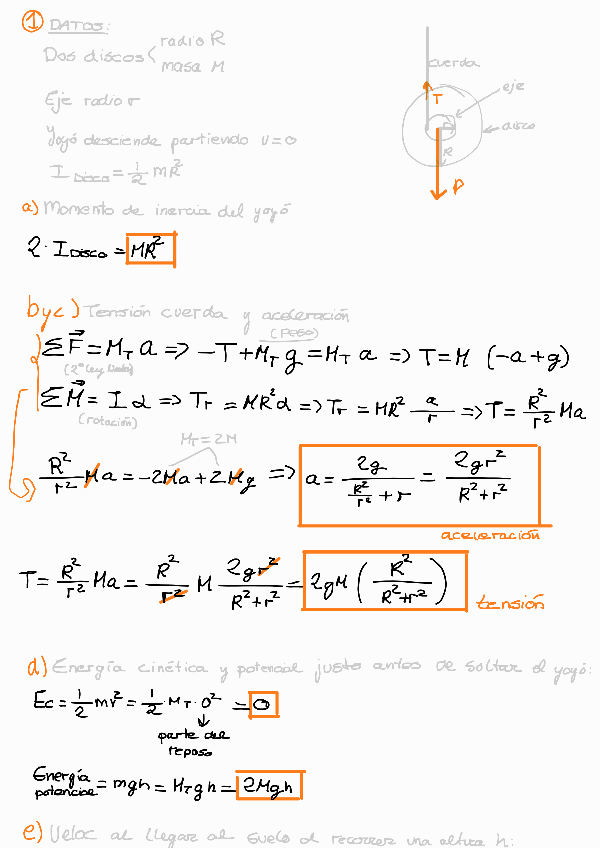 ① DATOS:
Dos discos < radio R
masa M
Eje radio r
Yoyó desciende partiendo v=0
I Disco = 1/2 MR²
cuerda
T
eje
disco
R
P
a) Momento de inercia del yoyó
2 · I Disco = MR²
b y c) Tensión cuerda y aceleración
(Peso)
ΣF = M_T a => -T + M_T g = M_T a => T = M (-a + g)
(2º Ley Newton)
ΣM = I α => Tr = MR² α => Tr = MR² a/r => T = R²/r² Ma
(rotación)
M_T = 2M
R²/r² Ma = -2Ma + 2Mg => a = 2g / (R²/r² + r) = 2gr² / (R² + r²)
aceleración
T = R²/r² Ma = R²/r² M 2gr² / (R² + r²) = 2gM (R² / (R² + r²))
tensión
d) Energía cinética y potencial justo antes de soltar el yoyó:
Ec = 1/2 mv² = 1/2 · M_T · 0² = 0
parte del
reposo
Energía
potencial = mgh = M_T g h = 2Mgh
e) Veloc al llegar al suelo al recorrer una altura h: